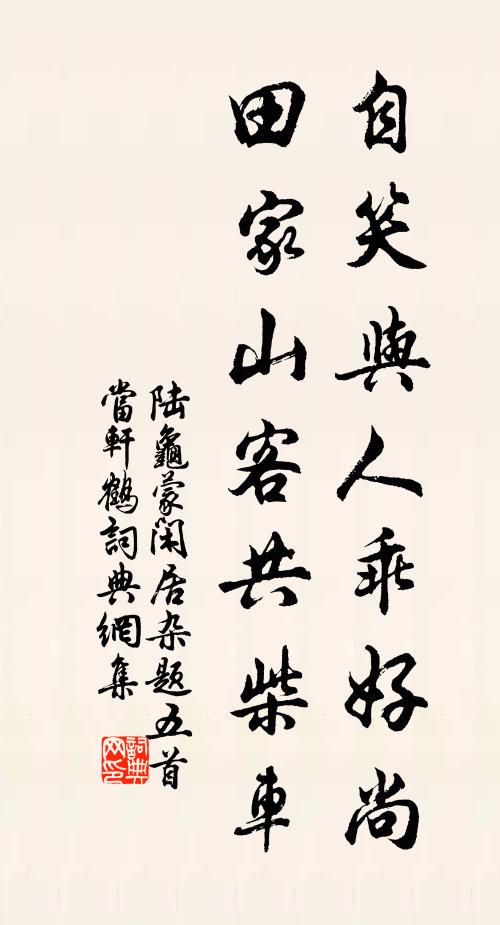 自笑與人乖好尚
田家山客共柴車
陆龜蒙闲居杂题五首
當軒鶴詞典網集
詞典